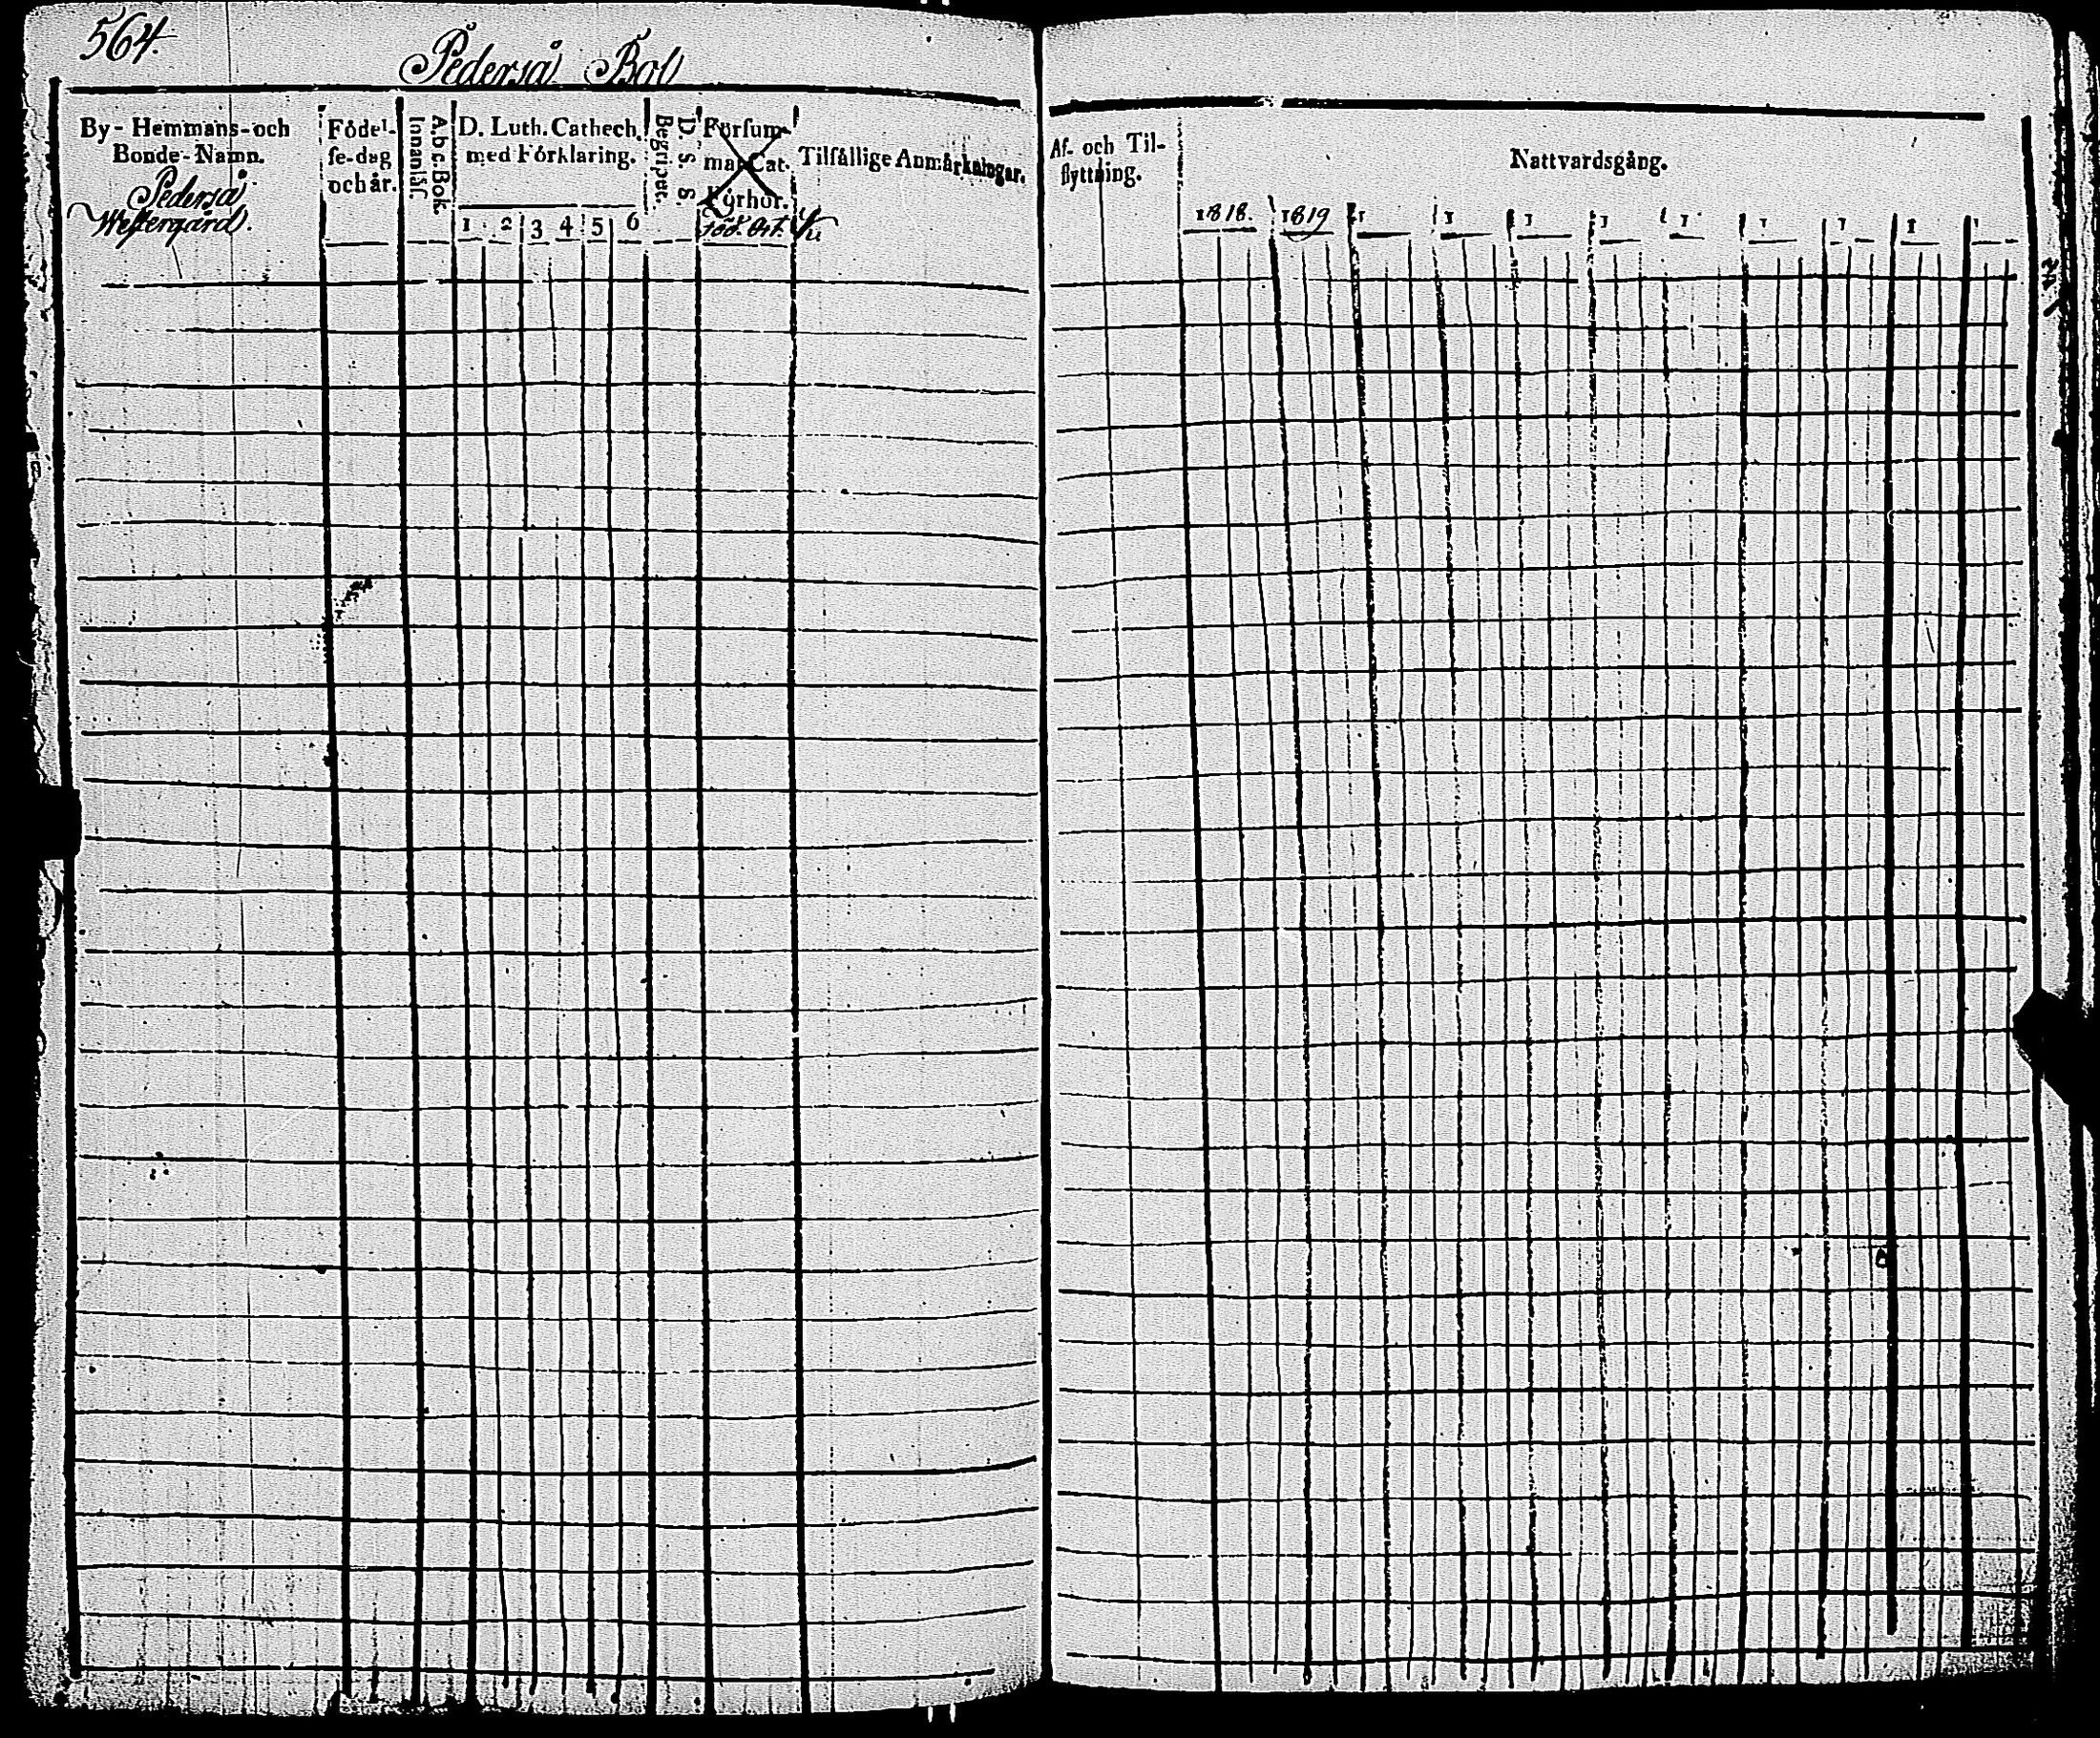 564.
Pederså Bol
By- Hemmans- och
Bonde-Namn.
Pederså
Westergård.
Födel-
se-dag
och år.
A.b.c.Bok.
Innanläs.
D. Luth. Cathech.
med Förklaring.
1 2 3 4 5 6
D. S. S.
Begripet.
Försum-
mat Cat.
Förhör.
Föd. Ort.
Tilfällige Anmärkningar.
Af- och Til-
flyttning.
Nattvardsgång.
1818. 1819 1 1 1 1 1 1 1 1 1